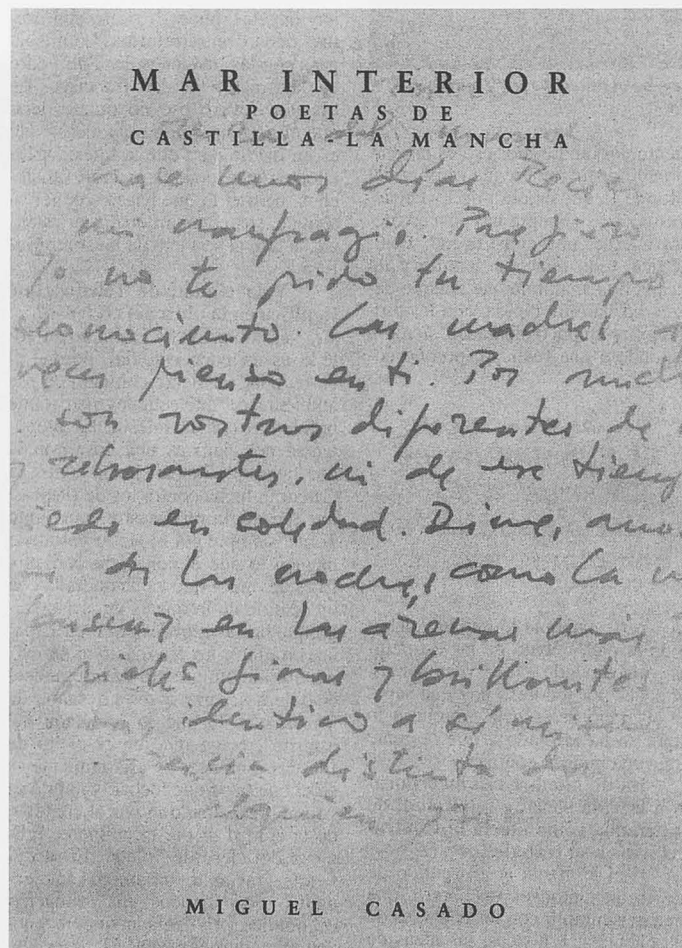 MAR INTERIOR
POETAS DE
CASTILLA-LA MANCHA
hace unos días Recién
mi naufragio. Prefiero
Yo no te pido tu tiempo
conocimiento. Las madres
veces pienso en ti. Por
son rostros diferentes de
rebosantes, ni de ese tiemp
en soledad. Dime, amo
de las madres, como la
en las arenas más
pieles finas y brillantes
identico a sí mi
encia distinta de
alguien
MIGUEL CASADO